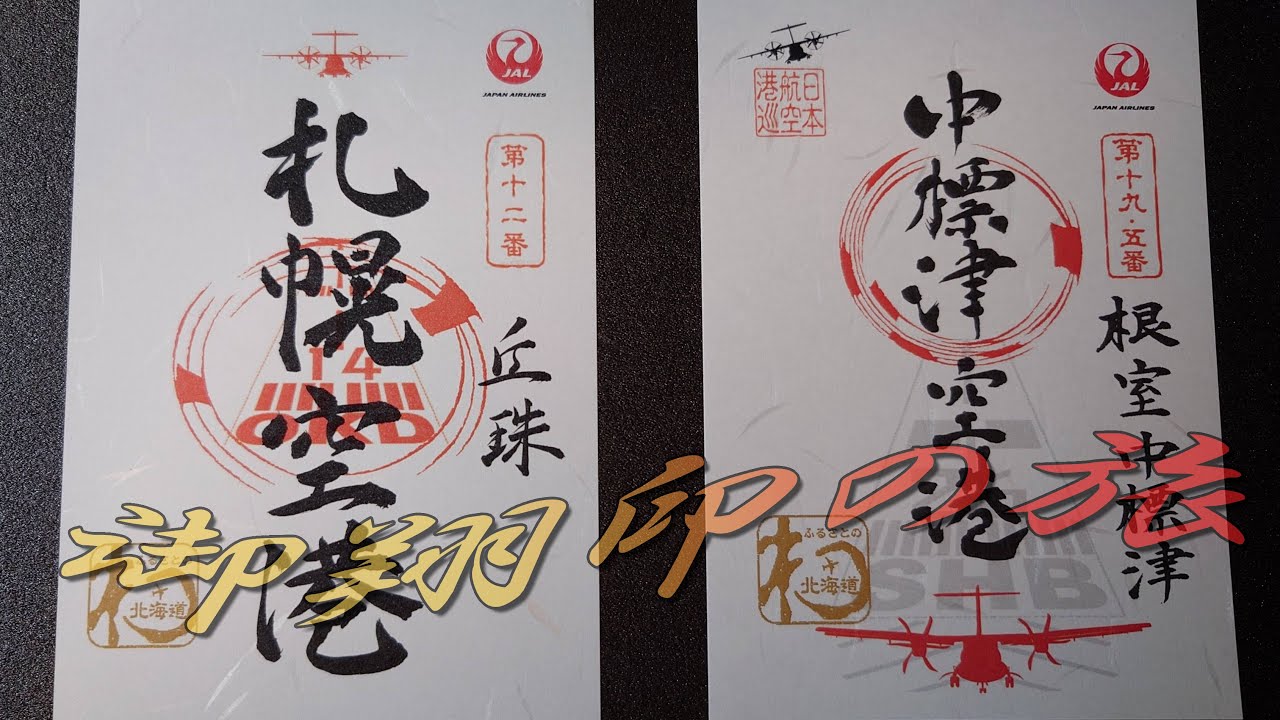 JAL
JAPAN AIRLINES
第十二番
札幌空港
丘珠
14
OKD
北海道
JAL
JAPAN AIRLINES
日本
航空
港巡
第十九・五番
中標津空港
根室中標津
SHB
ふるさとの
北海道
御翔印の旅